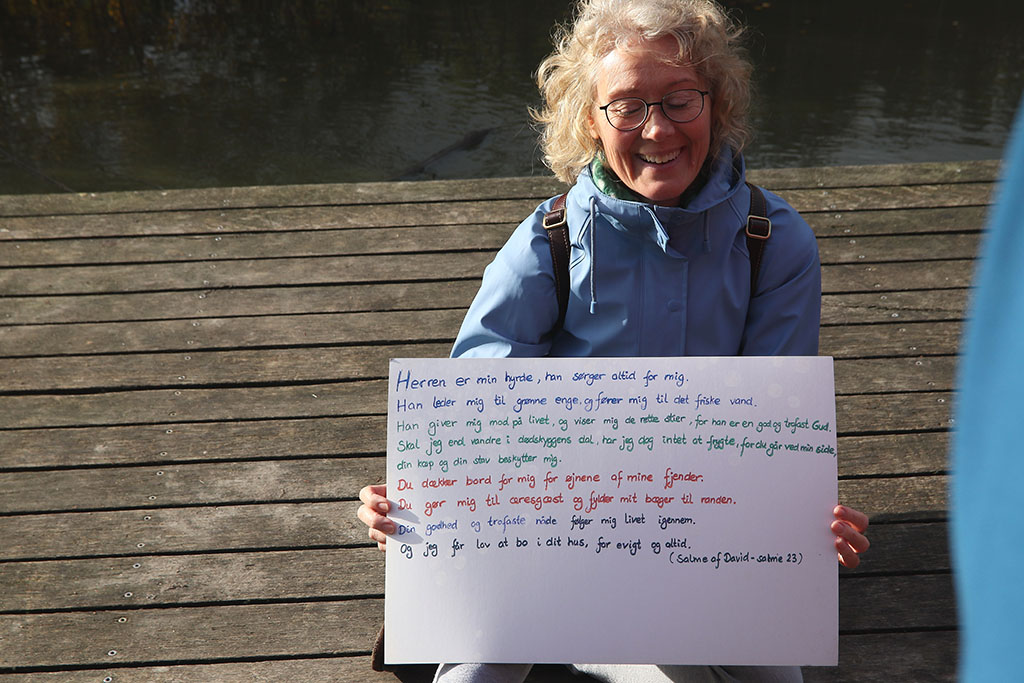 Herren er min hyrde, han sørger altid for mig.
Han leder mig til grønne enge, og fører mig til det friske vand.
Han giver mig mod på livet, og viser mig de rette stier, for han er en god og trofast Gud.
Skal jeg end vandre i dødskyggens dal, har jeg dog intet at frygte, for du går ved min side,
din kæp og din stav beskytter mig.
Du dækker bord for mig for øjnene af mine fjender.
Du gør mig til æresgæst og fylder mit bæger til randen.
Din godhed og trofaste nåde følger mig livet igennem.
Og jeg får lov at bo i dit hus, for evigt og altid.
(Salme af David - salme 23)